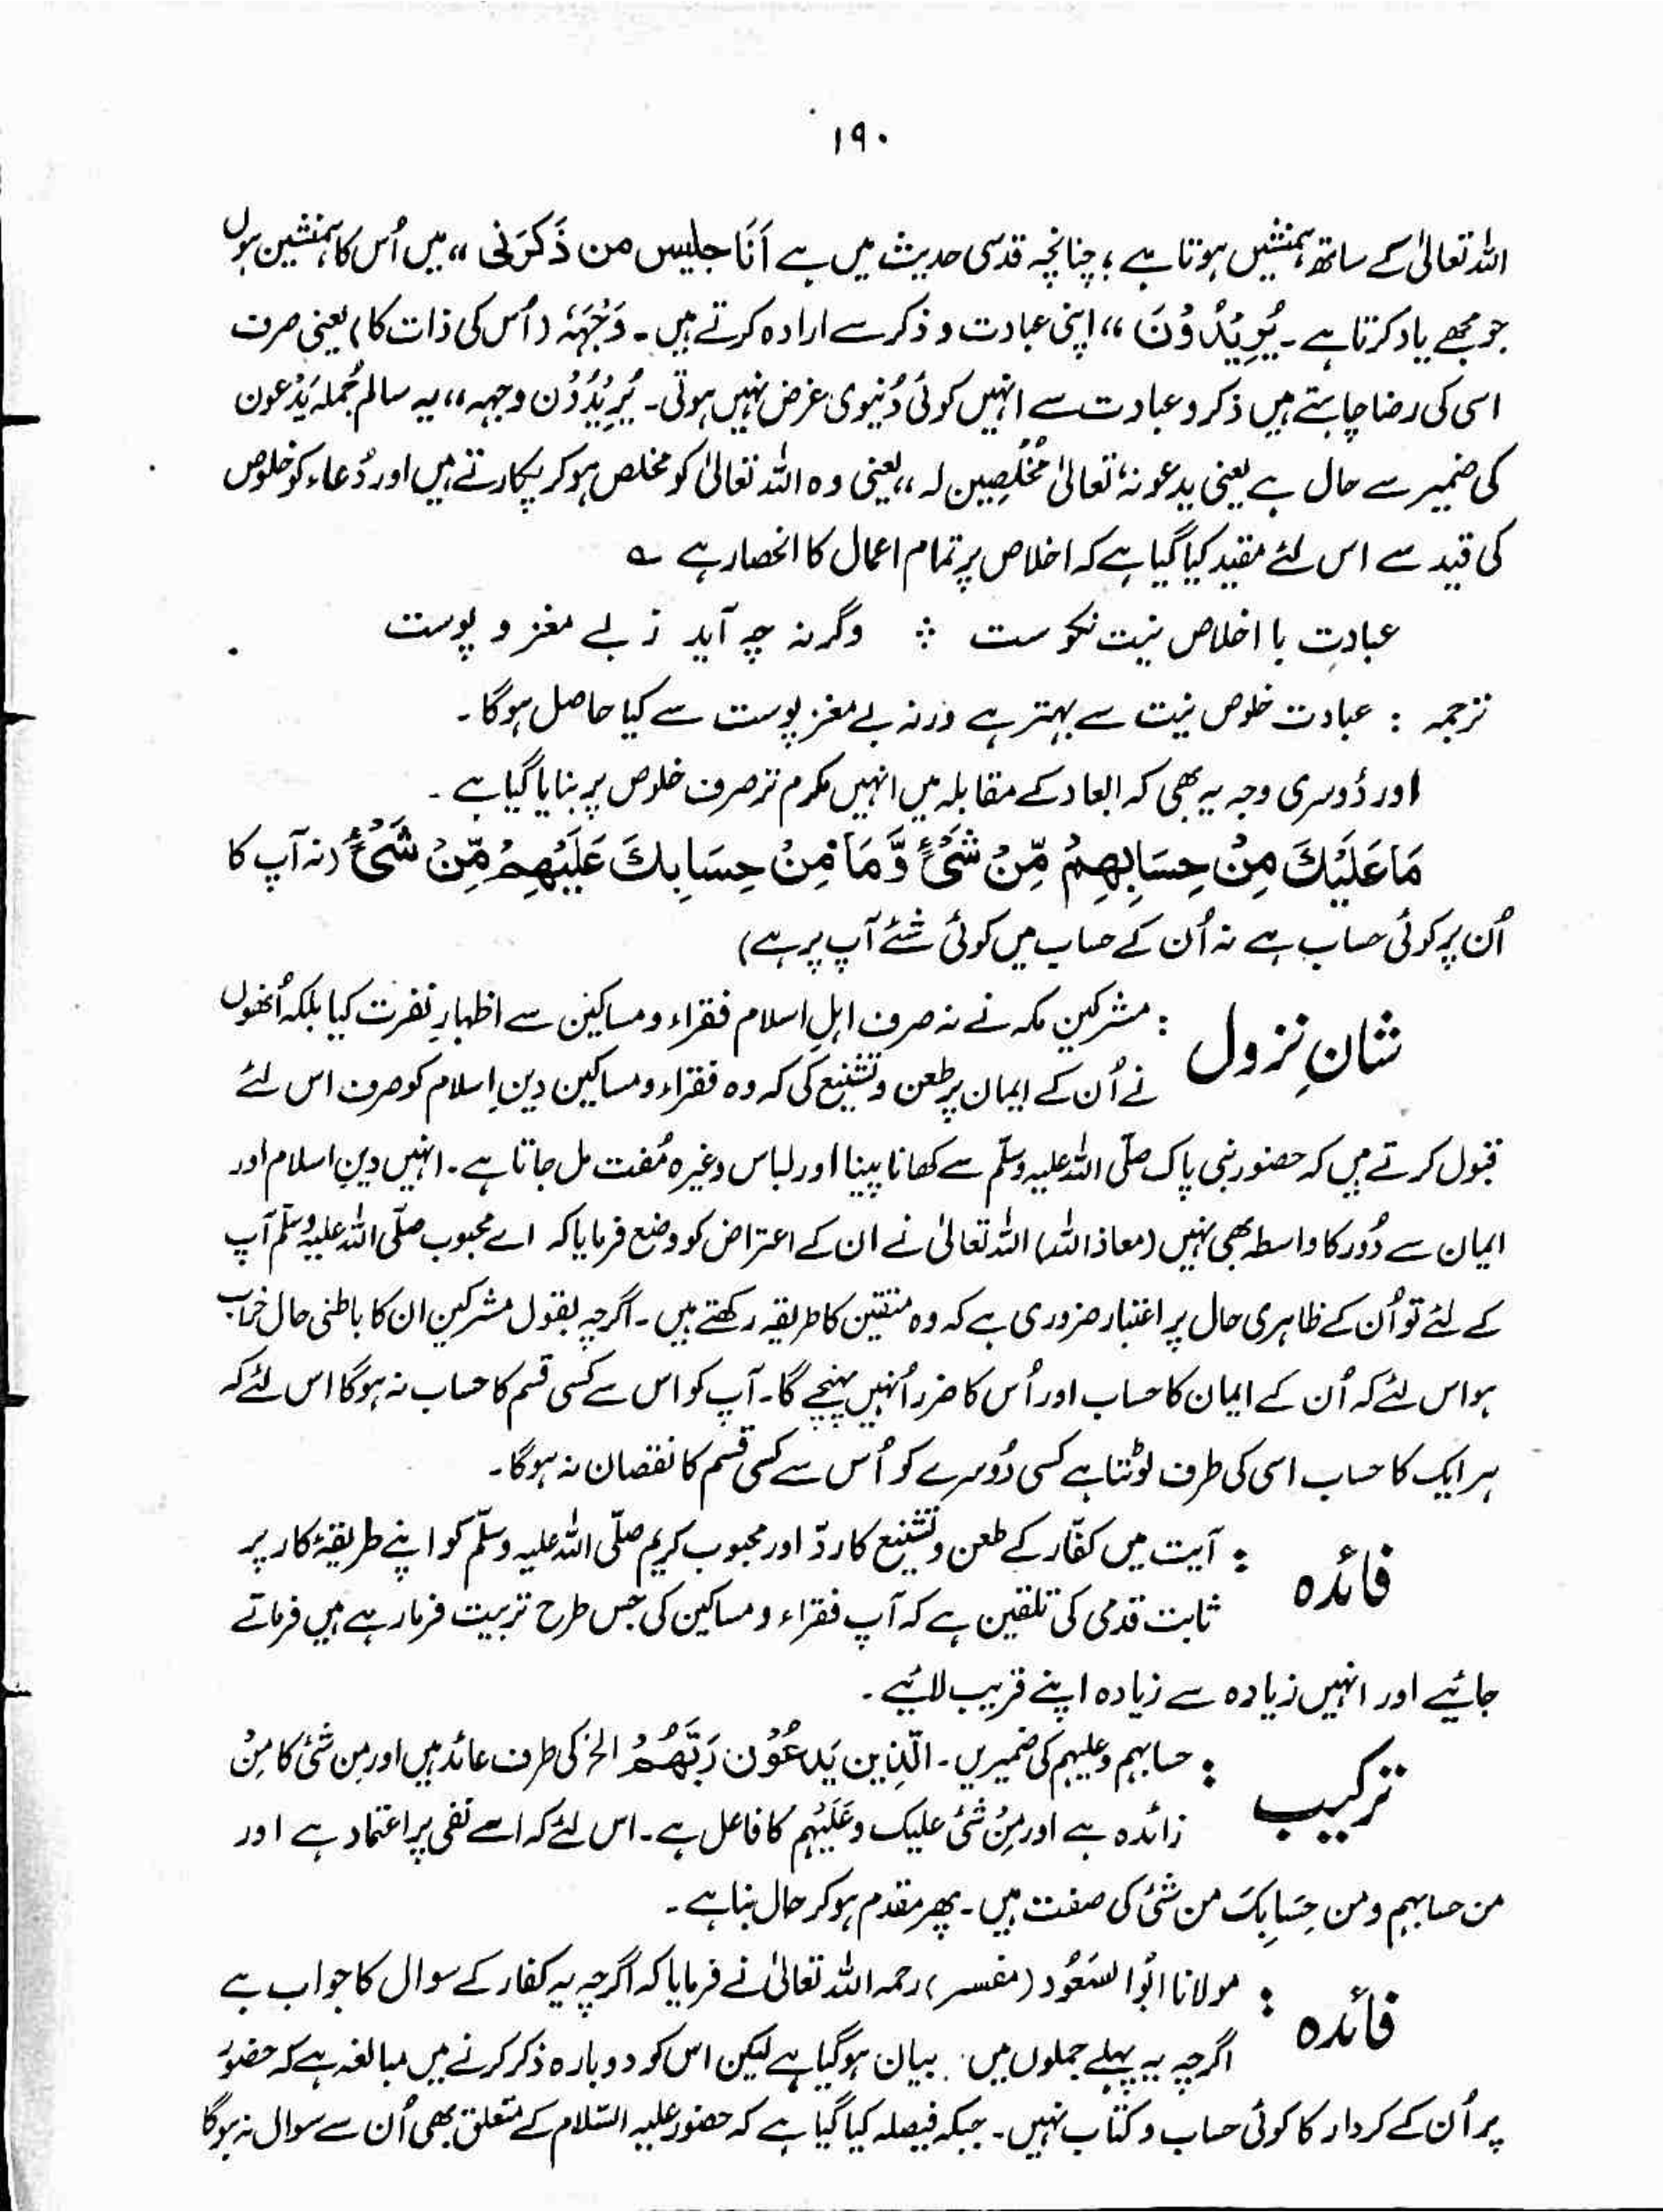 ۱۹۰
اللہ تعالیٰ کے ساتھ ہمنشیں ہوتا ہے؛ چنانچہ قدسی حدیث میں ہے اَنَا جلیس من ذَکَرَنی ،، میں اُس کا ہمنشین ہوں
جو مجھے یاد کرتا ہے ۔ یُرِیْدُوْنَ ،، اپنی عبادت و ذکر سے ارادہ کرتے ہیں ۔ وَجْہَہٗ (اُس کی ذات کا) یعنی صرف
اسی کی رضا چاہتے ہیں ذکر و عبادت سے انہیں کوئی دُنیوی غرض نہیں ہوتی ۔ یُرِیْدُوْن وجہہ ،، یہ سالم جُملہ یَدْعون
کی ضمیر سے حال ہے یعنی یدعونہٗ تعالیٰ مُخْلِصِین لہ ،، یعنی وہ اللہ تعالیٰ کو مخلص ہو کر پکارتے ہیں اور دُعاء کو خلوص
کی قید سے اس لئے مقید کیا گیا ہے کہ اخلاص پر تمام اعمال کا انحصار ہے ؎
عبادتِ با اخلاص نیت نکو ست ؞ وگرنہ چہ آید ز بے مغز و پوست
ترجمہ : عبادت خلوص نیت سے بہتر ہے ورنہ بے مغز پوست سے کیا حاصل ہوگا ۔
اور دُوسری وجہ یہ بھی کہ ابعاد کے مقابلہ میں انہیں مکرم تر صرف خلوص پر بنایا گیا ہے ۔
مَا عَلَیْكَ مِنْ حِسَابِهِمْ مِّنْ شَیْءٍ وَّ مَا مِنْ حِسَابِكَ عَلَیْهِمْ مِّنْ شَیْءٍ (نہ آپ کا
اُن پر کوئی حساب ہے نہ اُن کے حساب میں کوئی شئے آپ پر ہے)
شانِ نزول : مشرکین مکہ نے نہ صرف اہلِ اسلام فقراء و مساکین سے اظہارِ نفرت کیا بلکہ اُنھوں
نے اُن کے ایمان پر طعن و تشنیع کی کہ وہ فقراء و مساکین دینِ اسلام کو صرف اس لئے
قبول کرتے ہیں کہ حضور نبی پاک صلّی اللہ علیہ وسلّم سے کھانا پینا اور لباس وغیرہ مُفت مل جاتا ہے ۔ انہیں دین اسلام اور
ایمان سے دُور کا واسطہ بھی نہیں (معاذ اللہ) اللہ تعالیٰ نے ان کے اعتراض کو وضع فرمایا کہ اے محبوب صلّی اللہ علیہ وسلّم آپ
کے لئے تو اُن کے ظاہری حال پر اعتبار ضروری ہے کہ وہ متقین کا طریقہ رکھتے ہیں ۔ اگرچہ بقول مشرکین ان کا باطنی حال خراب
ہو اس لئے کہ اُن کے ایمان کا حساب اور اُس کا ضرر اُنہیں پہنچے گا ۔ آپ کو اس سے کسی قسم کا حساب نہ ہوگا اس لئے کہ
ہر ایک کا حساب اسی کی طرف لوٹتا ہے کسی دُوسرے کو اُس سے کسی قسم کا نقصان نہ ہوگا ۔
فائدہ : آیت میں کفّار کے طعن و تشنیع کا ردّ اور محبوب کریم صلّی اللہ علیہ وسلّم کو اپنے طریقۂ کار پر
ثابت قدمی کی تلقین ہے کہ آپ فقراء و مساکین کی جس طرح تربیت فرما رہے ہیں فرماتے
جائیے اور انہیں زیادہ سے زیادہ اپنے قریب لائیے ۔
ترکیب : حسابہم و علیہم کی ضمیریں ۔ الّذِین یَدعُوْن رَبَّھُمْ الخ کی طرف عائد ہیں اور مِن شَیْ کا مِنْ
زائدہ ہے اور مِنْ شَیْ علیک و عَلَیْہِم کا فاعل ہے ۔ اس لئے کہ اسے نفی پر اعتماد ہے اور
من حسابہم و من حِسَابِکَ من شَیْ کی صفت ہیں ۔ پھر مقدم ہو کر حال بنا ہے ۔
فائدہ : مولانا ابُو السعُود (مفسر) رحمہ اللہ تعالیٰ نے فرمایا کہ اگرچہ یہ کفار کے سوال کا جواب ہے
اگرچہ یہ پہلے جملوں میں بیان ہو گیا ہے لیکن اس کو دوبارہ ذکر کرنے میں مبالغہ ہے کہ حضور
پر اُن کے کردار کا کوئی حساب و کتاب نہیں ۔ جبکہ فیصلہ کیا گیا ہے کہ حضور علیہ السّلام کے متعلق بھی اُن سے سوال نہ ہوگا